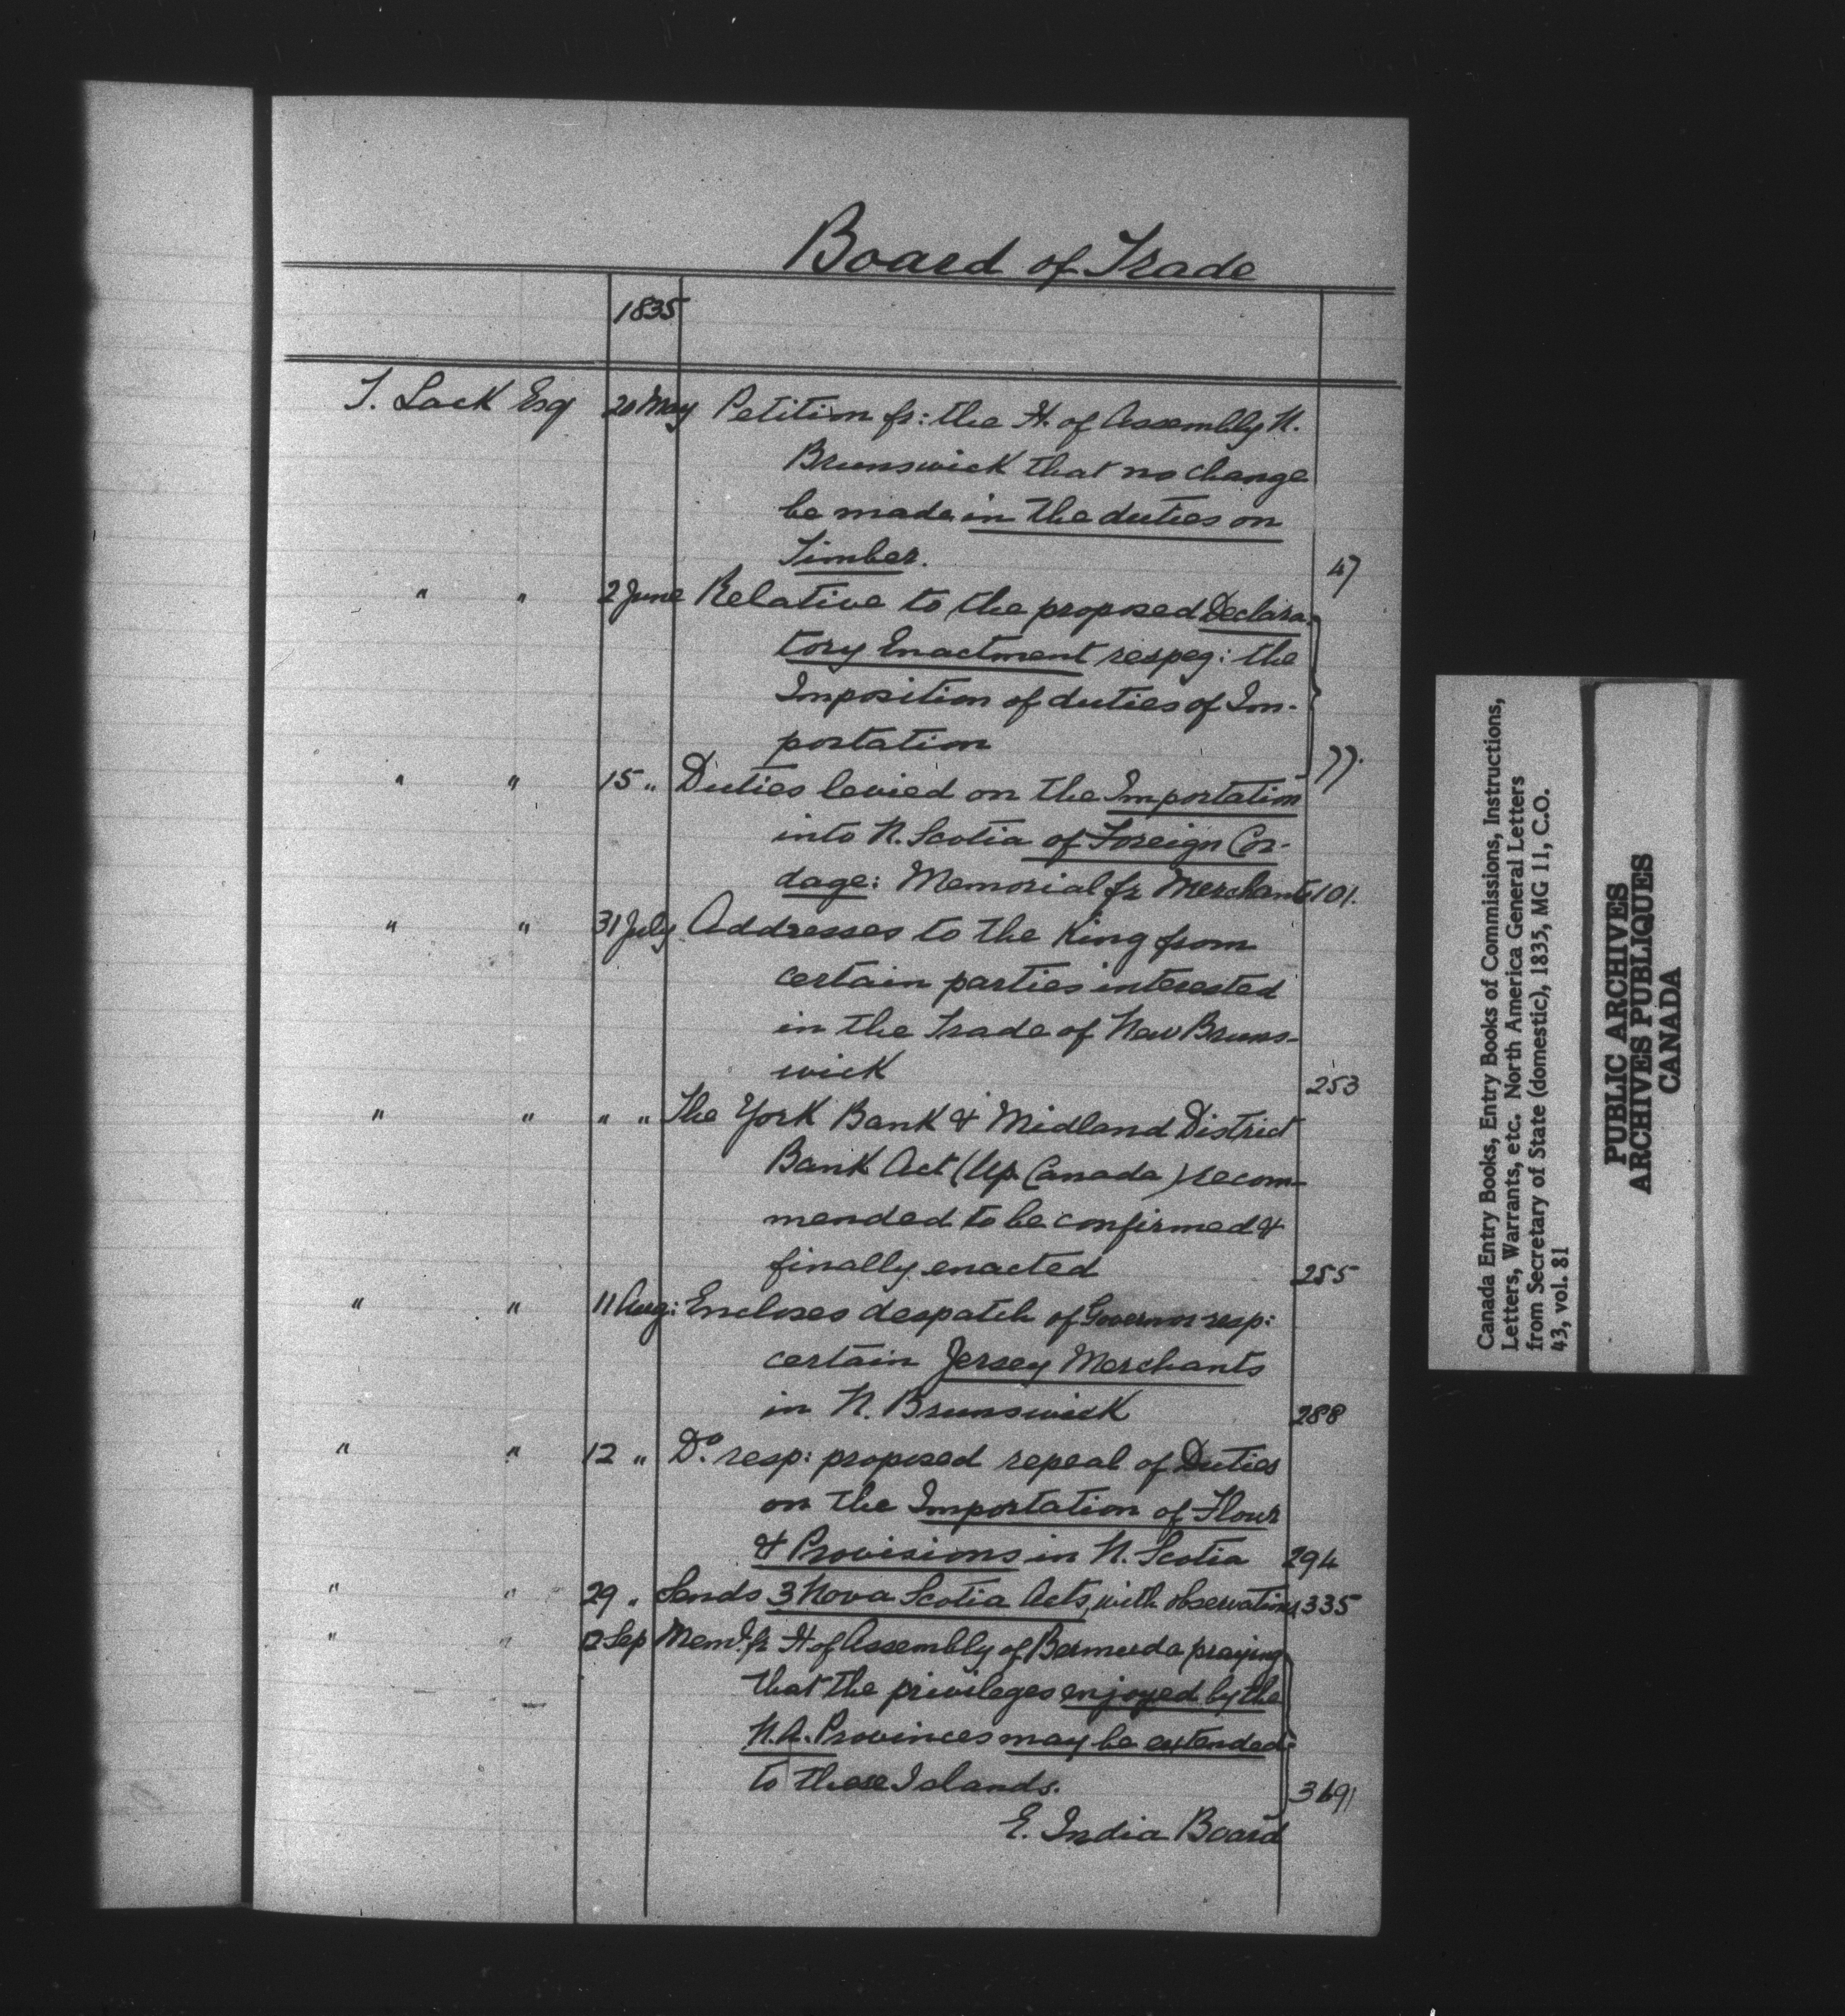 Board of Trade
1835
T. Lack Esq 20 May Petition fr: the H. of Assembly N.
Brunswick that no change
be made in the duties on
Timber. 47
" " 2 June Relative to the proposed Declara-
tory Enactment respeg: the
Imposition of duties of Im-
portation 77.
" " 15 " Duties levied on the Importation
into N. Scotia of Foreign Cor-
dage: Memorial fr Merchants 101.
" " 31 July Addresses to the King from
certain parties interested
in the Trade of New Bruns-
wick 253
" " " " The York Bank & Midland District
Bank Act (Up. Canada) recom-
mended to be confirmed &
finally enacted 255
" " 11 Aug: Encloses despatch of Governor resp:
certain Jersey Merchants
in N. Brunswick 288
" " 12 " Do. resp: proposed repeal of Duties
on the Importation of Flour
& Provisions in N. Scotia 294
" " 29 " Sends 3 Nova Scotia Acts, with observations 335
" " Sep Meml. fr H of Assembly of Bermuda praying
that the privileges enjoyed by the
N.A. Provinces may be extended
to these Islands.
E. India Board
Canada Entry Books, Entry Books of Commissions, Instructions,
Letters, Warrants, etc. North America General Letters
from Secretary of State (domestic), 1835, MG 11, C.O.
43, vol. 81
PUBLIC ARCHIVES
ARCHIVES PUBLIQUES
CANADA